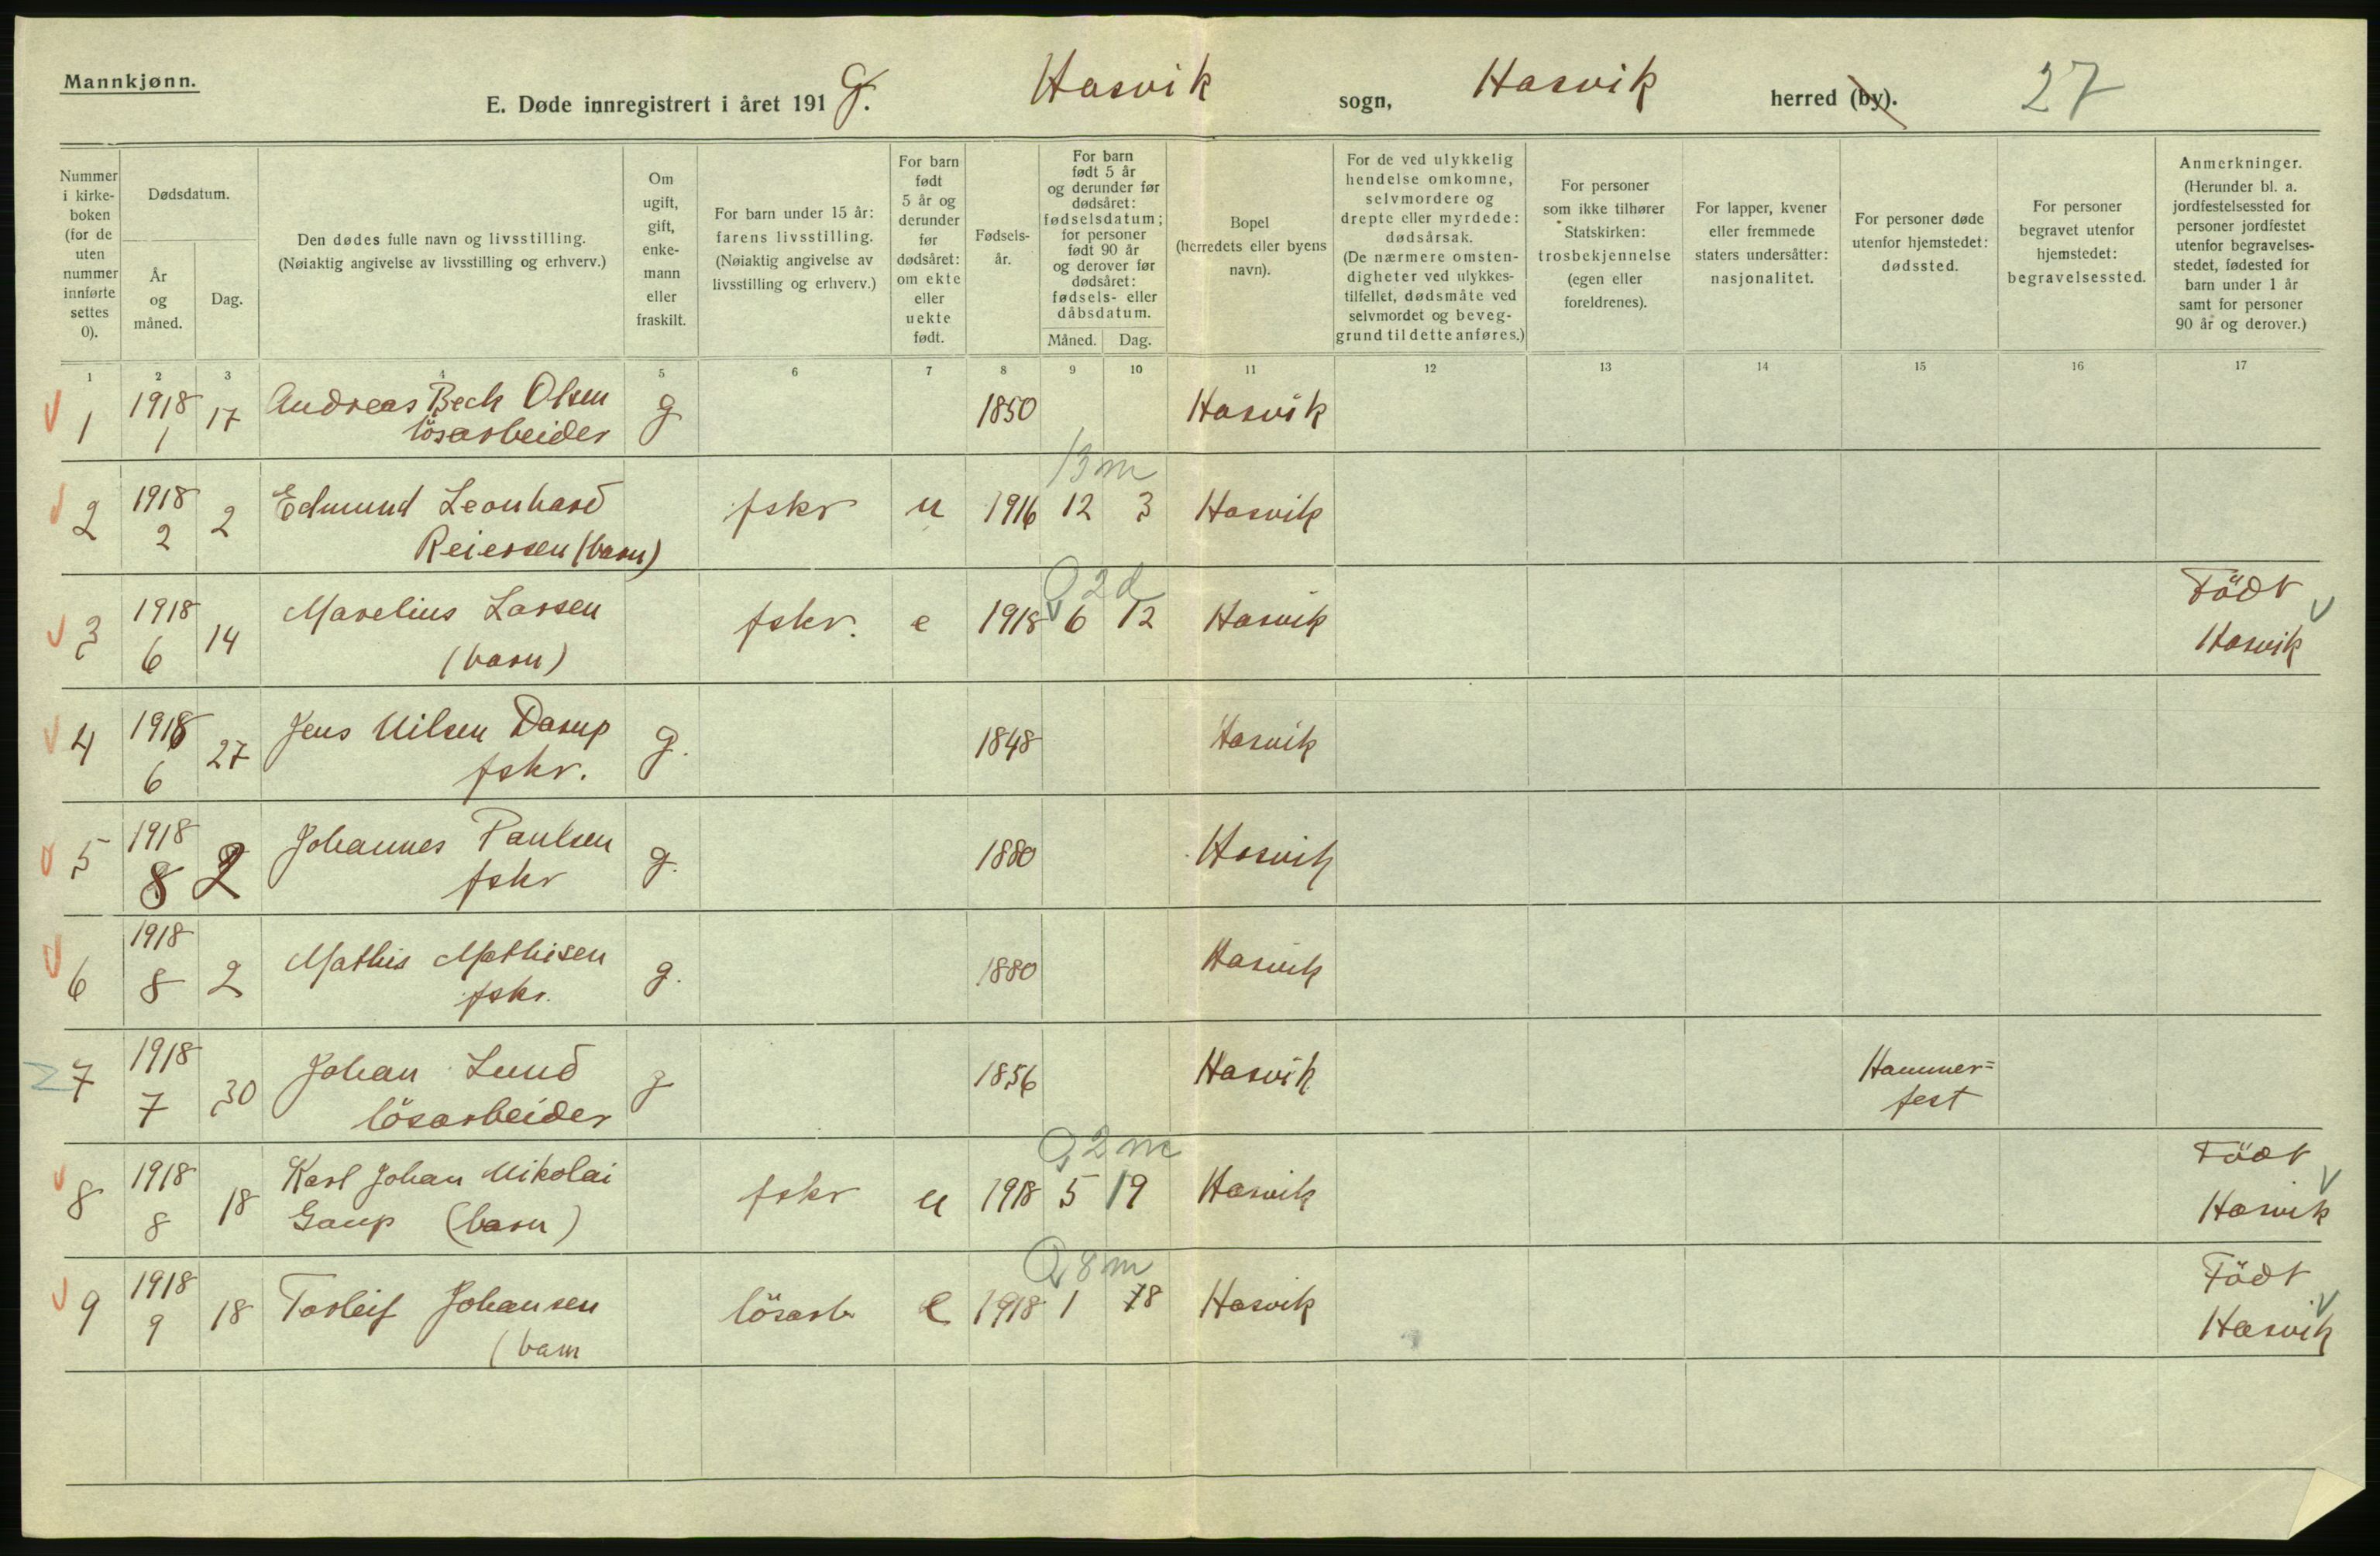 Mannkjønn.
E. Døde innregistrert i året 1918. Hasvik sogn, Hasvik herred (by). 27
Nummer i kirke-boken (for de uten nummer innførte settes 0).
Dødsdatum.
År og måned.
Dag.
Den dødes fulle navn og livsstilling.
(Nøiaktig angivelse av livsstilling og erhverv.)
Om ugift, gift, enke-mann eller fraskilt.
For barn under 15 år: farens livsstilling.
(Nøiaktig angivelse av livsstilling og erhverv.)
For barn født 5 år og derunder før dødsåret: om ekte eller uekte født.
Fødsels-år.
For barn født 5 år og derunder før dødsåret: fødselsdatum; for personer født 90 år og derover før dødsåret: fødsels- eller dåbsdatum.
Måned. Dag.
Bopel (herredets eller byens navn).
For de ved ulykkelig hendelse omkomne, selvmordere og drepte eller myrdede: dødsårsak.
(De nærmere omsten-digheter ved ulykkes-tilfellet, dødsmåte ved selvmordet og beveg-grund til dette anføres.)
For personer som ikke tilhører Statskirken: trosbekjennelse (egen eller foreldrenes).
For lapper, kvener eller fremmede staters undersåtter: nasjonalitet.
For personer døde utenfor hjemstedet: dødssted.
For personer begravet utenfor hjemstedet: begravelsessted.
Anmerkninger.
(Herunder bl. a. jordfestelsessted for personer jordfestet utenfor begravelses-stedet, fødested for barn under 1 år samt for personer 90 år og derover.)
1 2 3 4 5 6 7 8 9 10 11 12 13 14 15 16 17
1 1918 17 Andreas Beck Olsen g 1850 Hasvik
1 lösarbeider
13 m
2 1918 2 Edmund Leonhard fskr u 1916 12 3 Hasvik
2 Reiersen (barn)
0 2 d
3 1918 14 Marelius Larsen fskr. e 1918 6 12 Hasvik Födt
6 (barn) Hasvik
4 1918 27 Jens Nilsen Darup g. 1848 Hasvik
6 fskr.
5 1918 2 Johannes Paulsen g. 1880 Hasvik
8 fskr
6 1918 2 Mathis Mathisen g. 1880 Hasvik
8 fskr.
7 1918 30 Johan Lund g 1856 Hasvik Hammer=
7 lösarbeider fest
0, 2 m
8 1918 18 Karl Johan Nikolai fskr u 1918 5 19 Hasvik Födt
8 Gaup (barn) Hasvik
0, 8 m
9 1918 18 Torleif Johansen lösarb e 1918 1 18 Hasvik Födt
9 (barn Hasvik